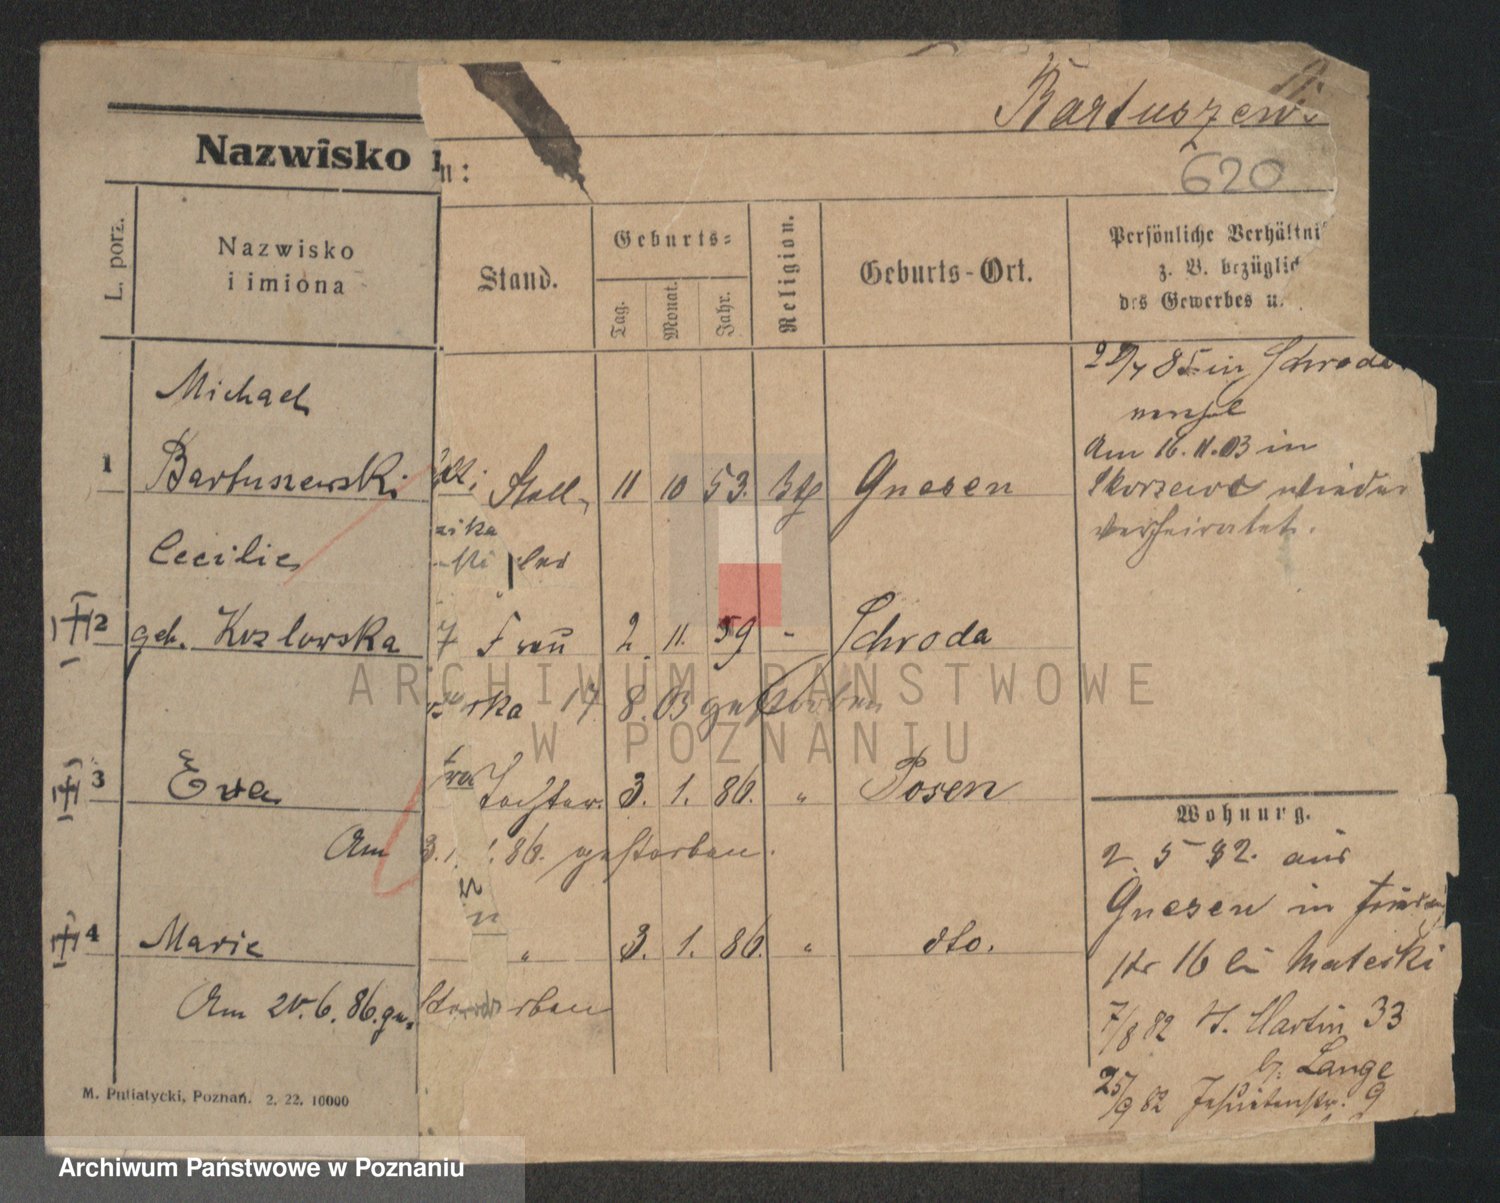 Bartuszew
620
Nazwisko i
n:
L. porz.
Nazwisko
i imiona
Stand.
Geburts-
Tag.
Monat.
Jahr.
Religion.
Geburts-Ort.
Persönliche Verhältnis
z. B. bezüglich
des Gewerbes u.
Michael
1 Bartuszewski Stell. 11 10 53. Gnesen
zika
Cecilie
2 geb. Kozlowska Frau 2. 11. 59 " Schroda
ska 17 8. 03 gestorben
3 Ewa Tochter. 3. 1. 86. " Posen
Am 3. 1. 86. gestorben.
4 Marie " 3. 1. 86. " dto.
Am 20. 6. 86. ge- storben
in Schroda
Am 16. 11. 03 in
Skorzewo wieder
verheiratet.
Wohnung.
2. 5 82. aus
Gnesen in
str 16 bei Mateski
7/8 82 St. Martin 33
b. Lange
25/9 82 Jesuitenstr. 9
M. Putiatycki, Poznań. 2. 22. 10000
ARCHIWUM PAŃSTWOWE
W POZNANIU
Archiwum Państwowe w Poznaniu